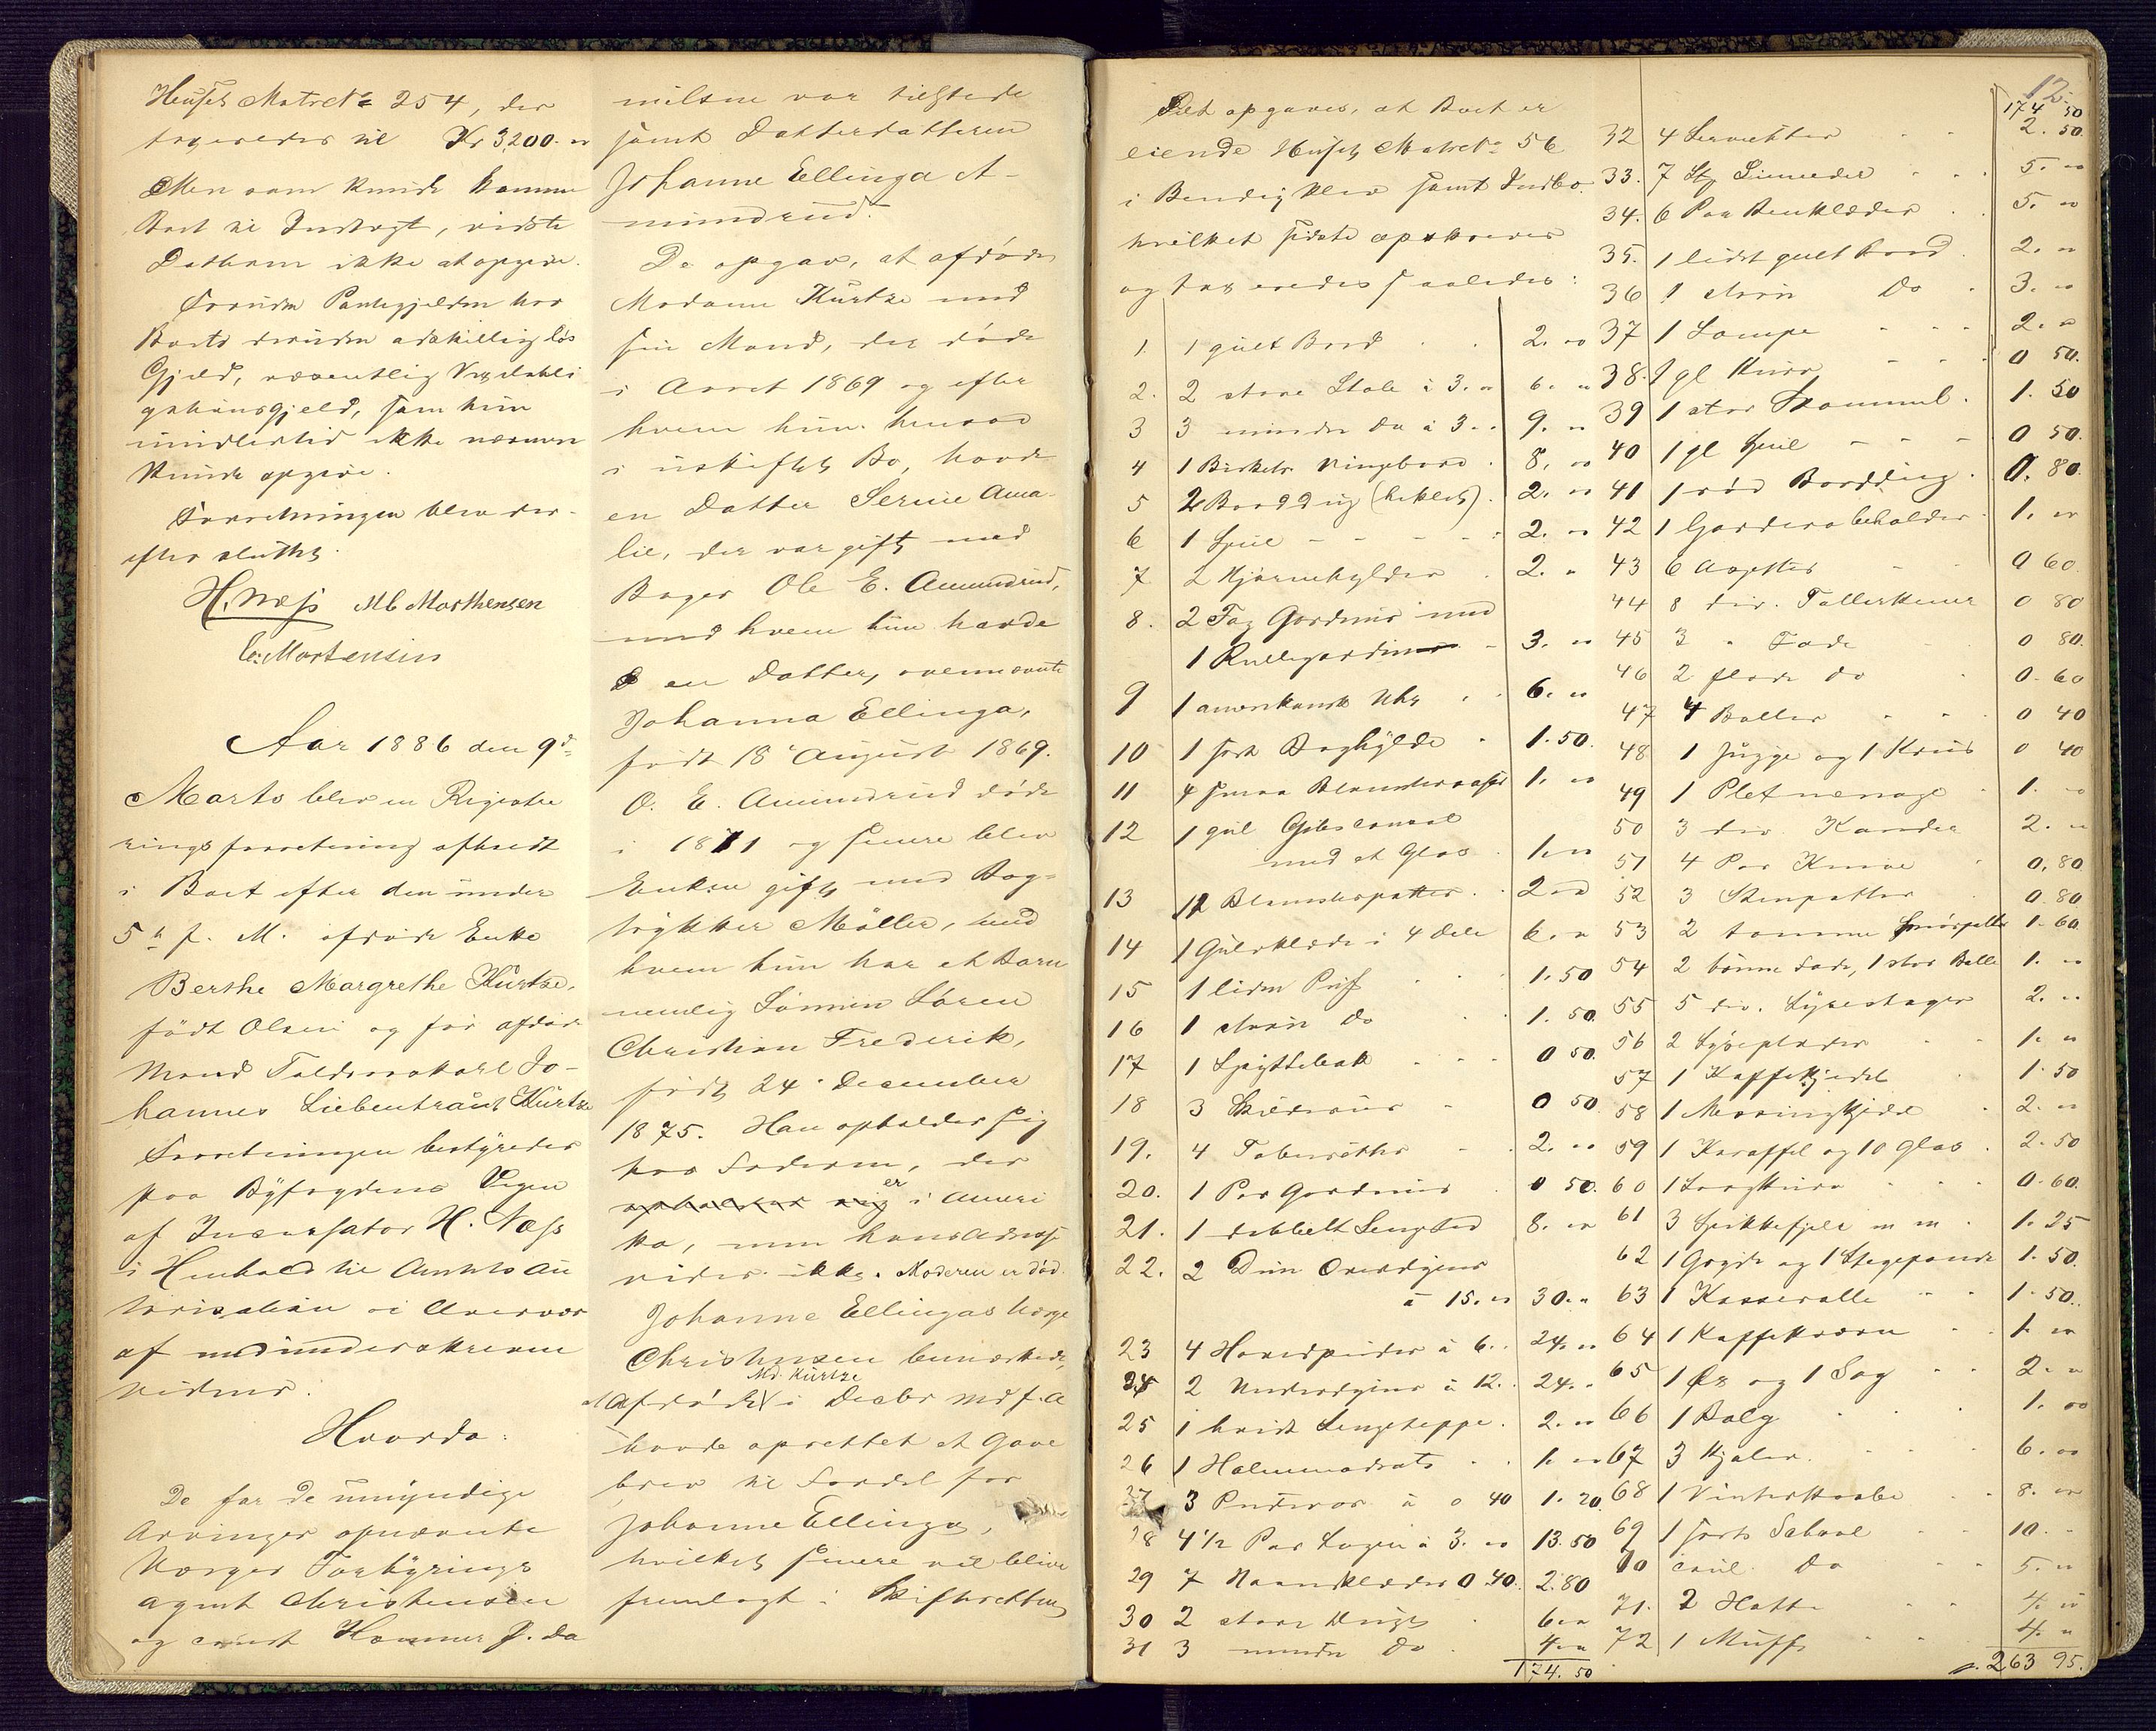 Huset Matr No 254, der
taxeredes til Kr 3200. "
Men som kunde komme
Boet til Indtægt, vidste
Datteren ikke at opgive.
Foruden Pantegjelden har
Boets desuden adskillig løs
Gjeld, væsentlig
som hun
imidlertid ikke nærmere
kunde opgive.
Forretningen blev der-
efter sluttet.
H. Næss MC Morthensen
C. Mortensen
Aar 1886 den 9de
Marts blev en Registre
ringsforretning afholdt
i Boet efter den under
5te f. M. afdøde Enke
Berthe Margrethe Kürtze,
født Olsen og før afdøde
Mand Toldopsk Jo-
hannes Liebentraut Kürtze
Forretningen bestyredes
paa Byfogdens Vegne
af Incassator H. Næss
i Henhold til Amtets Au
torisation i Overvær
af medunderskrevne
Vidner.
Hvorda:
De for de umyndige
Arvinger opnævnte
Værger Forhyrings
agent Christensen
og Hammer P. Da
nilsen var tilstede
samt Datterdatteren
Johanne Ellinga A-
mundrud.
De opgav, at afdøde
Madame Kürtze med
sin Mand, der døde
i Aaret 1869 og efter
hvem hun hensad
i uskiftet Bo, havde
en Datter Serine Ama-
lie, der var gift med
Bager Ole E. Amundrud,
med hvem hun havde
en Datter, ovennævnte
Johanna Ellinga,
født 18 August 1869.
O. E. Amundrud døde
i 1871 og senere blev
Enken gift med Bog-
trykker Møller, med
hvem hun har et Barn
nemlig Sønnen Søren
Christian Frederik,
født 24 December
1875. Han opholder sig
hos Faderen, der
opholder sig er i Ameri
ka, men hans Adresse
vides ikke. Moderen er død.
Johanne Ellingas Værge
Christensen bemærkede,
at Afdøde Md. Kürtze i Decbr Md f. A
havde oprettet et Gave
brev til Fordel for
Johanne Ellinga,
hvilket senere vil blive
fremlagt i Skifteretten
12
Det opgaves, at Boet er
eiende Huset Matr No 56
i Bendiksklev samt Indbo
hvilket sidste opskreves
og taxeredes saaledes:
1. 1 gult Bord 2. "
2. 2 store Stole à 3. " 6. "
3 3 mindre do à 3. " 9. "
4 1 Birkets Vingebord 8. "
5 2 Borddug (heklet) 2. "
6 1 Speil 2. "
7 2 Hjørnehylder 2. "
8. 2 Fag Gardiner med
1 Rullegardin 3. "
9 1 amerikansk Uhr 6. "
10 1 sort Boghylde 1.50.
11 4 smaa Blomstervaser 1. "
12 1 gul
med et Glas 1. "
13 12 Blomsterpotter 2 "
14 1 Gulvklæde i 4 Dele 6. "
15 1 liden Puf 1.50
16 1 større do 1.50.
17 1 Spyttebak 0 50.
18 3 Skilderier 0 50.
19. 4 Taburetter 2. "
20. 1 Par Gardiner 0 50.
21. 1 dobbelt Sengsted 8. "
22. 2 Dun Overdyner
à 15. " 30. "
23 4 Hovedpuder à 6. 24. "
24 2 Underdyner à 12. 24. "
25 1 hvidt Sengeteppe 2. "
26 1 Halmmadrats 1. "
27 3 Pudevar à 0 40 1.20.
28 4 1/2 Par Lagen à 3. " 13.50
29 7 Haandklæder 0 40. 2.80
30 2 store Duge 6. "
31 3 mindre do 4. "
174.50
174 50
32 4 Servietter 2.50.
33. 7 5. "
34. 6 Par Benklæder 5. "
35. 1 lidet gult Bord 2. "
36 1 større Do 3. "
37 1 Lampe 2. "
38. 1 gl Kurv 0 50.
39 1 stor Skammel 1.50
40 1 gl Speil 0 50.
41 1 rød Borddug 0.80.
42 1 1. "
43 6 Asjetter 0 60.
44 8 div. Tallerkener 0 80
45 3 " Fade 0 80.
46 2 flade do 0.60
47 4 Boller 0 40
48 1 Mugge og 1 Krus 0 40
49 1 Pletmenage 1. "
50 3 div Kander 2. "
51 4 Par Knive 0.80
52 3 Stenpotter 0.80
53 2 tomme Smørfjelle 1.60.
54 2 tinne Fade, 1 stor Balle 1. "
55 5 div. Lysestager 2. "
56 2 Lyseplader 1. "
57 1 Kaffekjedel 1.50
58 1 Messingkjedel 2. "
59 1 Karaffel og 10 Glas 2.50
60 1 0.60.
61 3 m m 1.25
62 1 Gryde og 1 Stegepande 1.50.
63 1 Kasserolle 1.50.
64 1 Kaffekværn 1. "
65 1 Øx og 1 Sag 2. "
66 1 Balg 1. "
67 3 Kjoler. 6. "
68 1 Vinterkaabe 8. "
69 1 sort Schavl 10. "
70 Do 5. "
71. 2 Hatte 4. "
72 1 Muffe 4. "
263 95.